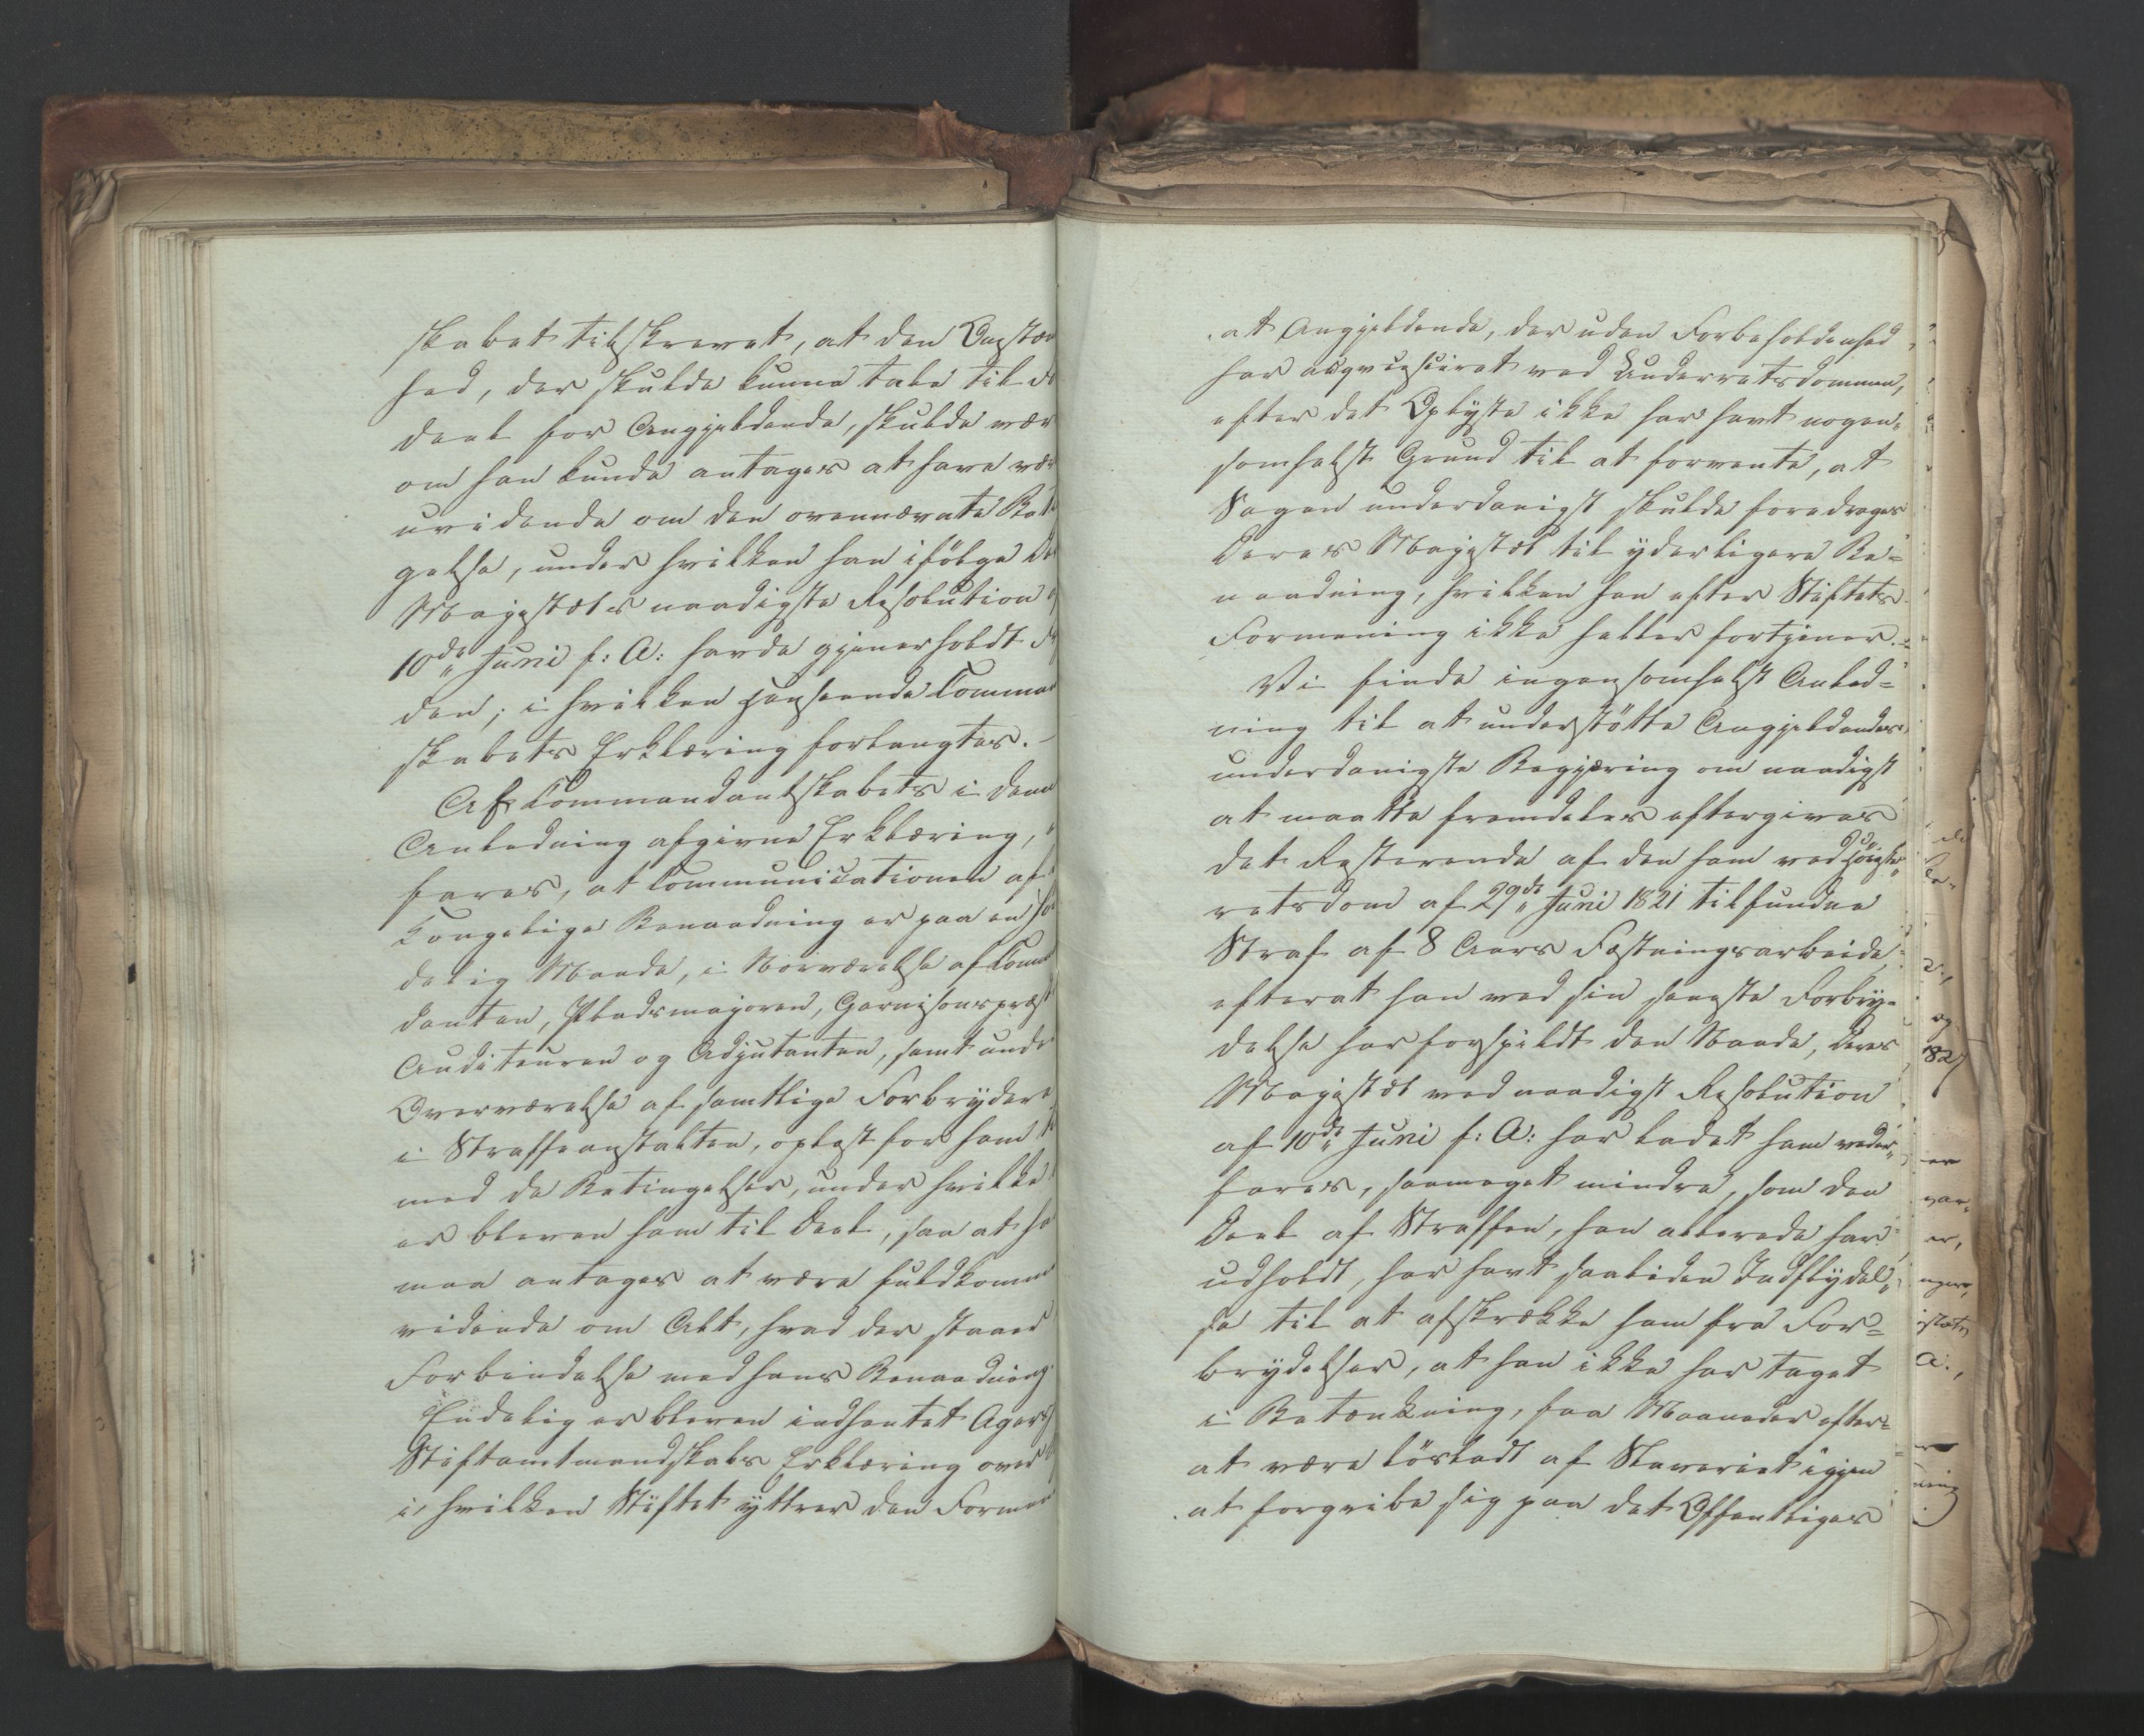 skabet tilskrevet, at den Omstæn
hed, der skulde kunne tale til For
deel for Angjeldende, skulde vær
om han kunde antages at have vær
uvidende om den ovennævnte Beti
gelse, under hvilken han ifölge De
Majestæts naadigste Resolution a
10de Juni f: A: havde gjenerholdt Fri
den; i hvilken Henseende Comman
skabets Erklæring forlangtes. –
Af Commandantskabets i denne
Anledning afgivne Erklæring, er
fares, at Communicationen af
Kongelige Benaadning er paa en höi
delig Maade, i Nærværelse af Comm
danten, Pladsmajoren, Garnisonspræst
Auditeuren og Adjutanten, samt unde
Overværelse af samtlige Forbrydere
i Straffeanstalten, oplæst for ham
med de Betingelser, under hvilke
er bleven ham til Deel, saa at ha
maa antages at være fuldkomme
vidende om Alt, hvad der staaer
Forbindelse med hans Benaadning.
Endelig er bleven indhentet Agers
Stiftamtmandskabs Erklæring over
i, hvilken Stiftet yttrer den Formen
at Angjeldende, der uden Forbeholdenhed
har acqviesceret ved Underretsdommen,
efter det Oplyste ikke har havt nogen„
somhelst Grund til at formente, at
Sagen underdanigst skulde foredrages
Deres Majestæt til yderligere Be=
naadning, hvilken han efter Stiftets
Formening ikke heller fortjener. –
Vi finde ingensomhelst Anled=
ning til at understötte Angjeldendes
underdanigste Begjæring om naadigst
at maatte fremdeles eftergives
det Resterende af den ham ved Höieste„
retsdom af 29de Juni 1821 tilfundne
Straf af 8 Aars Fæstningsarbeide,
efterat han ved sin seneste Forbry=
delse har forspildt den Naade, Deres
Majestæt ved naadigst Resolution
af 10de Juni f: A: har ladet ham veder„
fares, saameget mindre, som den
Deel af Straffen, han allerede har
udholdt, har havt saaliden Indflydel„
se til at afskrække ham fra For=
brydelser, at han ikke har taget
i Betænkning, faa Maaneder efter=
at være lösladt af Slaveriet igjen
at forgribe sig paa det Offentliges